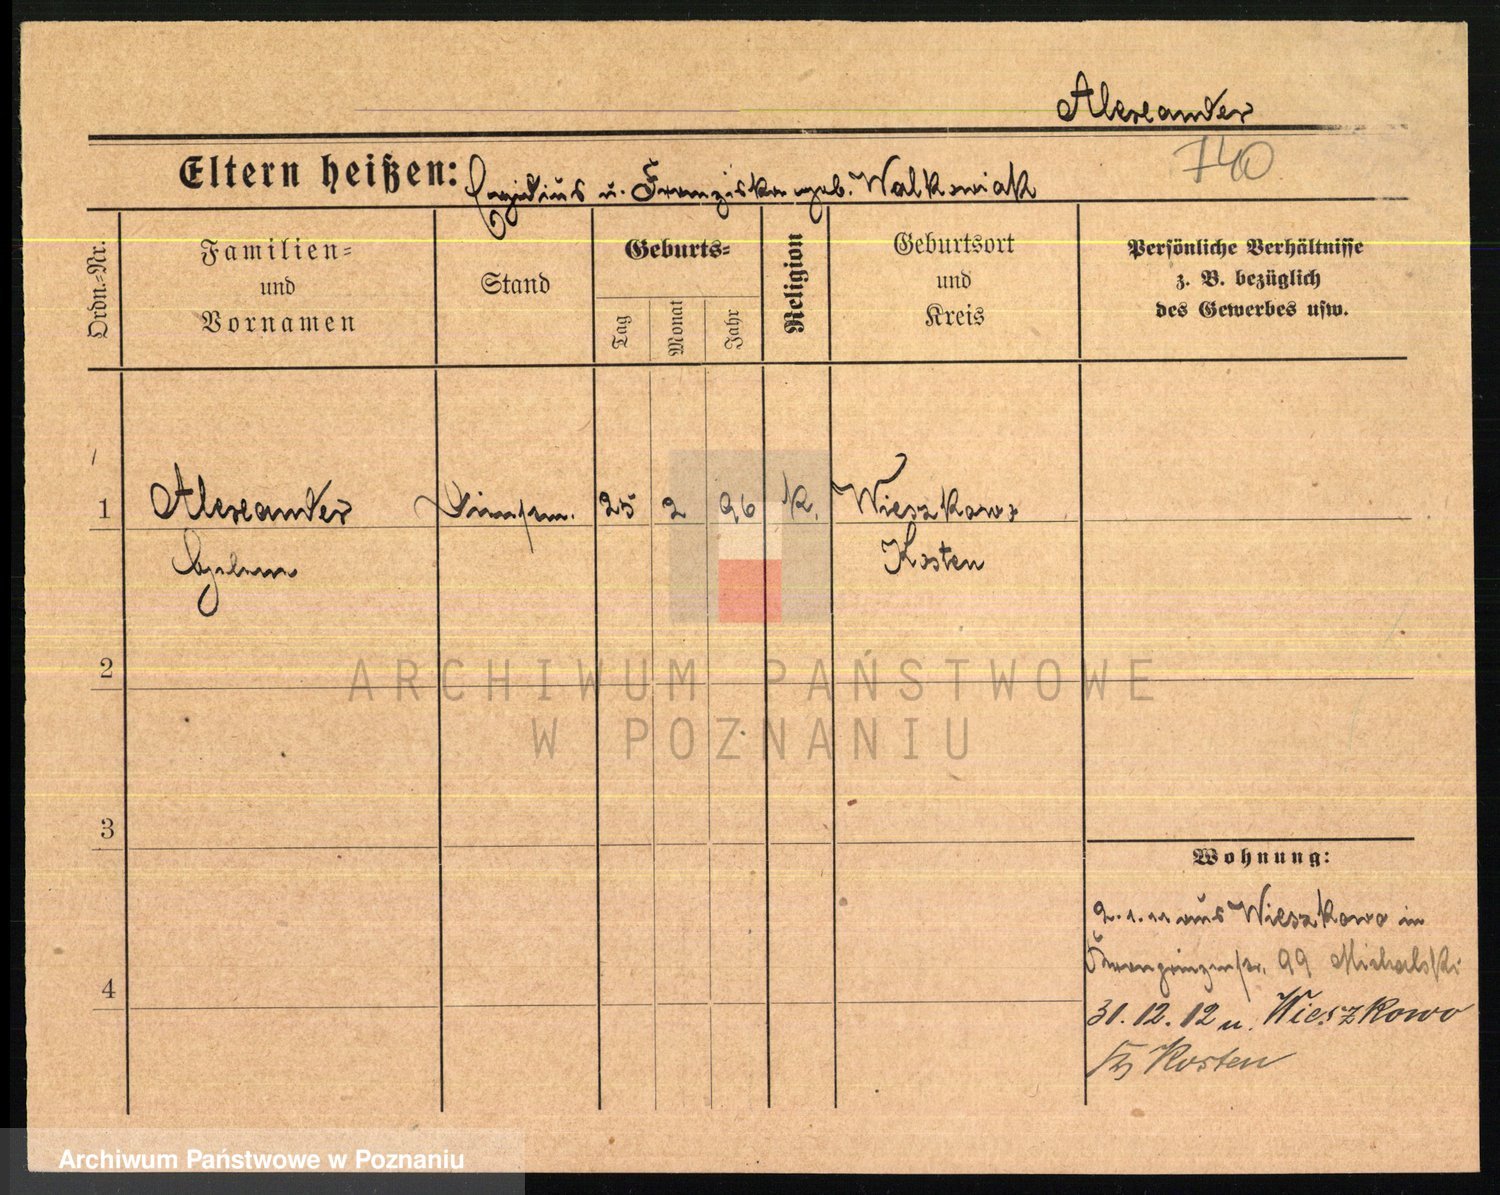 Alexander
740
Eltern heißen: Egidius u. Franziska geb. Walkowiak
Ordn.-Nr.
Familien-
und
Vornamen
Stand
Geburts-
Tag
Monat
Jahr
Religion
Geburtsort
und
Kreis
Persönliche Verhältnisse
z. B. bezüglich
des Gewerbes usw.
1
Alexander
25 2 96 k.
Wieszkowo
Kosten
2
3
4
Wohnung:
2.1.11 aus Wieszkowo in
Kronprinzenstr. 99 Michalski
31.12.12 n. Wieszkowo
Kosten
ARCHIWUM PAŃSTWOWE
W POZNANIU
Archiwum Państwowe w Poznaniu